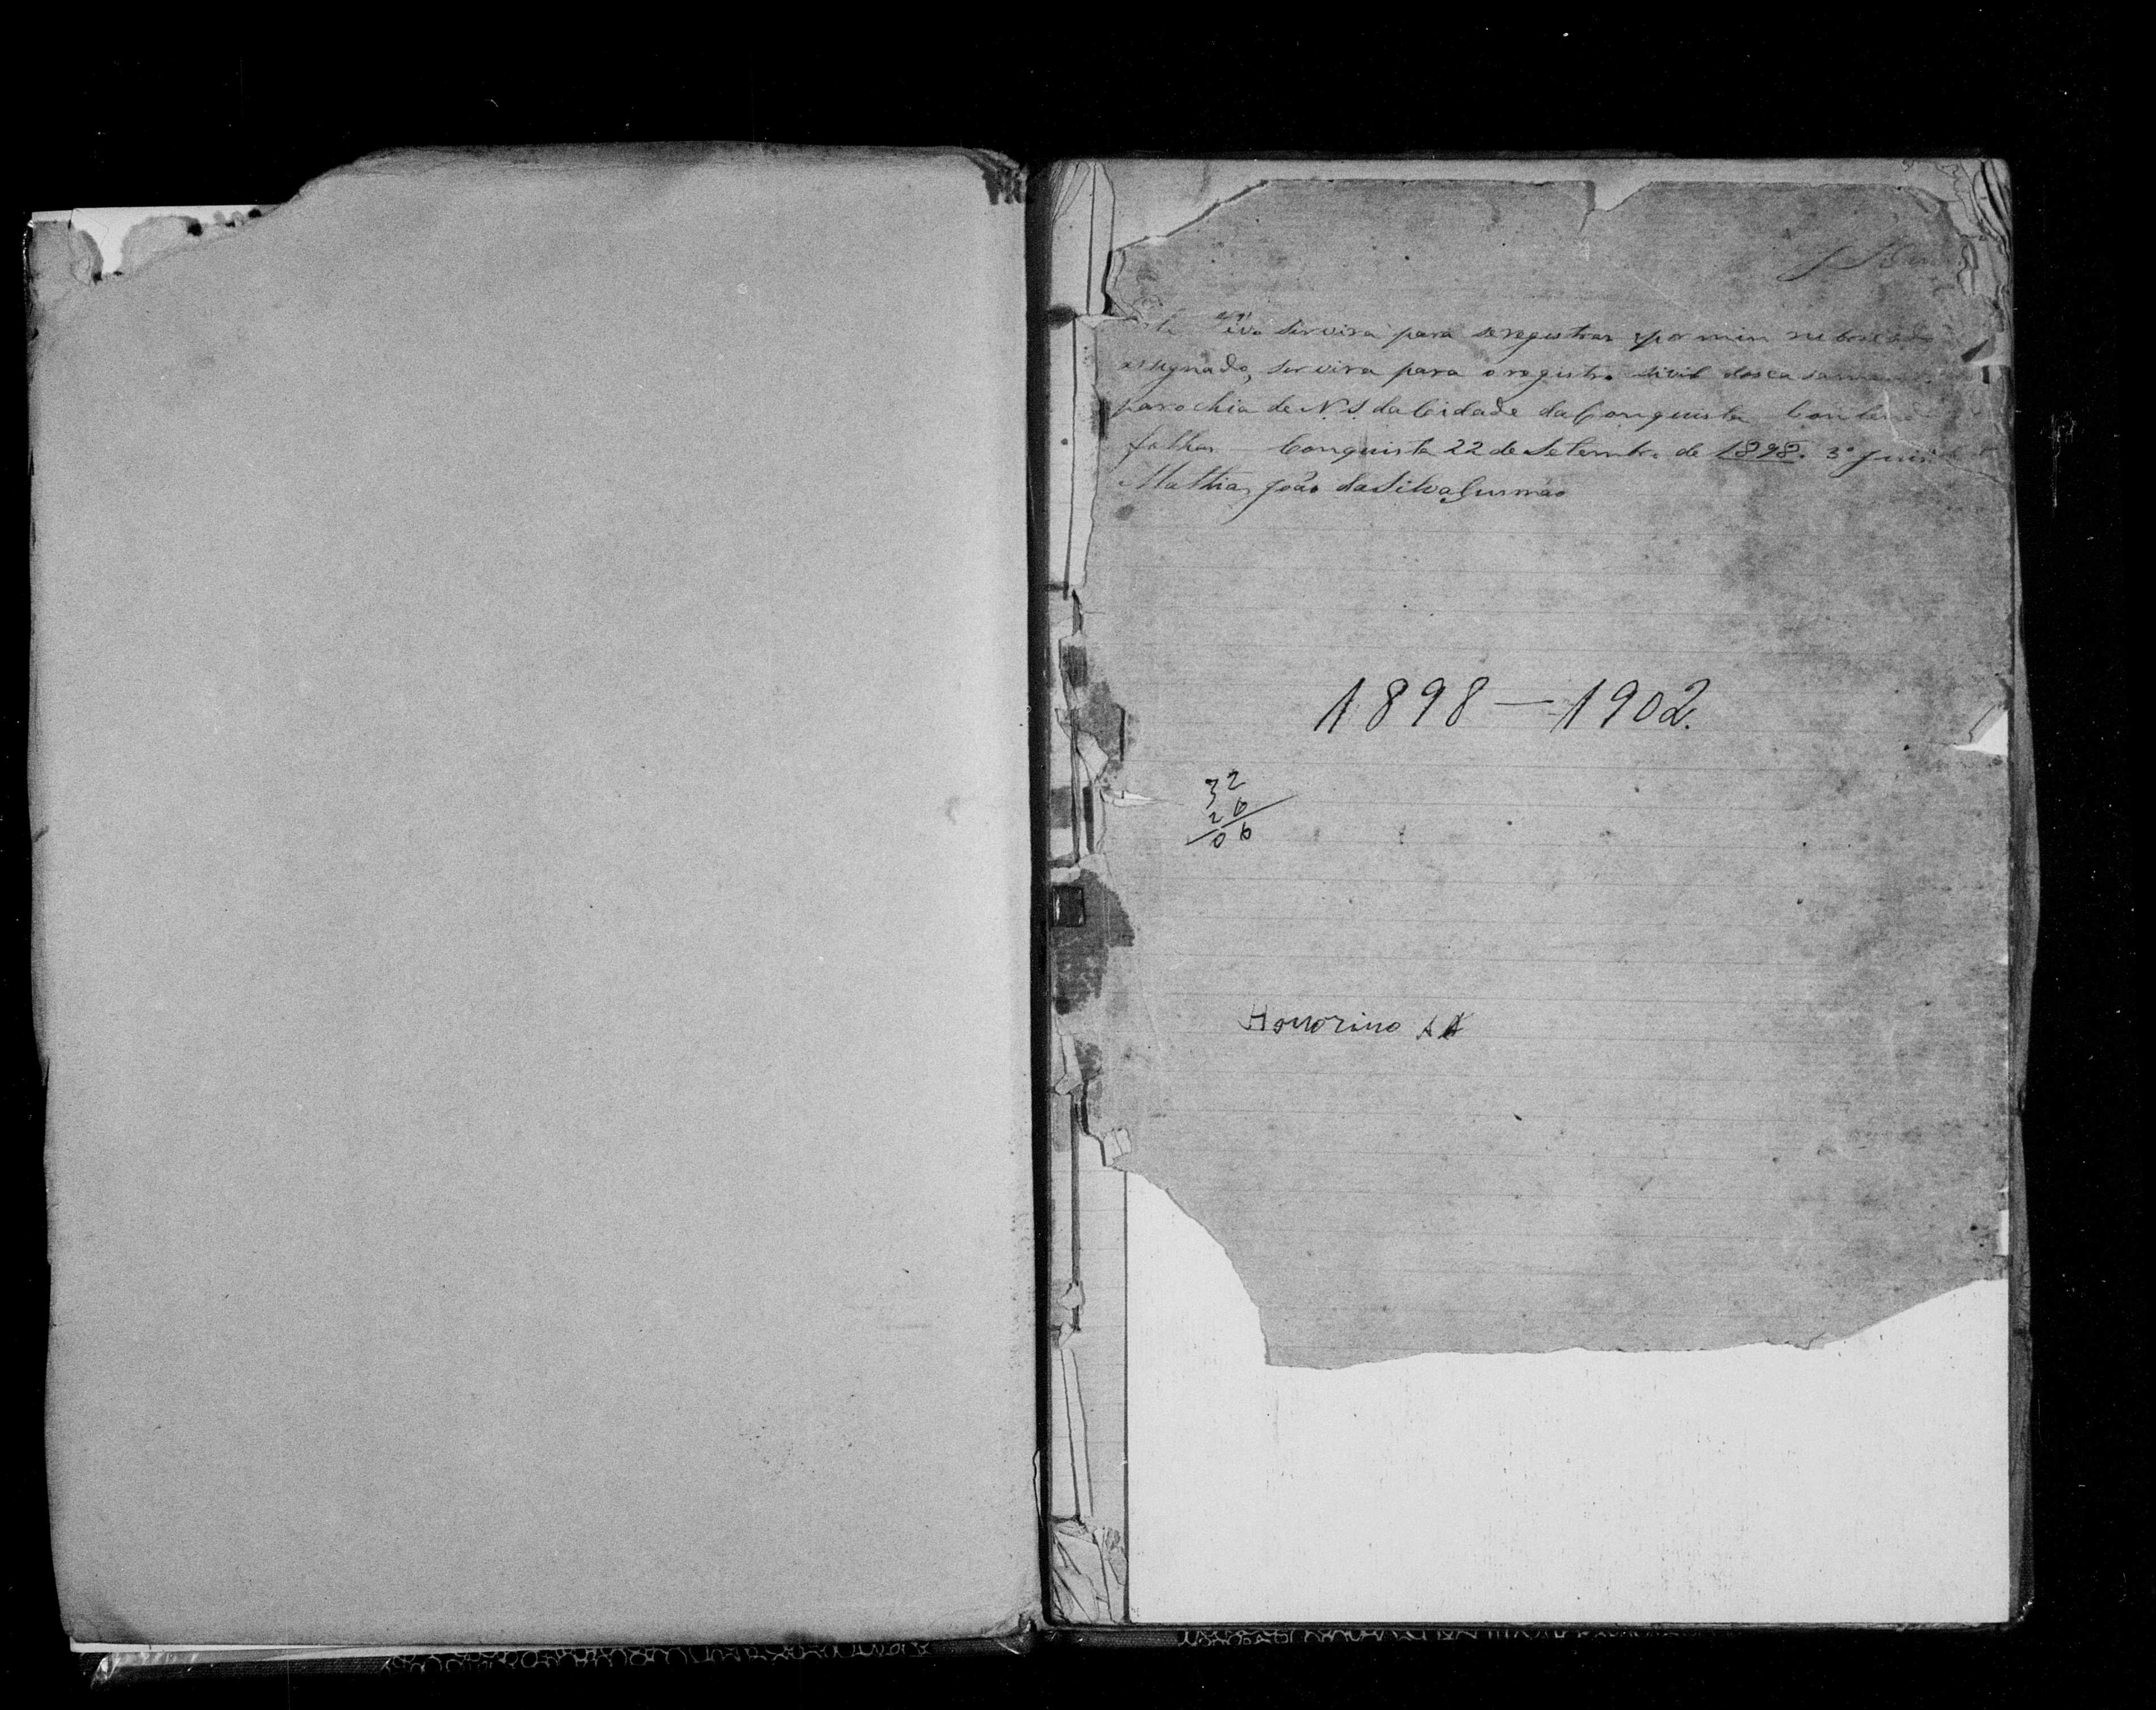 servira para se registrar e por mim rubricado
assignado, servira para o registro sivil dos casam
parochia de N. S. da Cidade da Conquista Conten
folhas Conquista 22 de Setembro de 1898. 3º Juis
Mathias João da Silva Gusmão
1898 — 1902.
32
26
06
Honorino